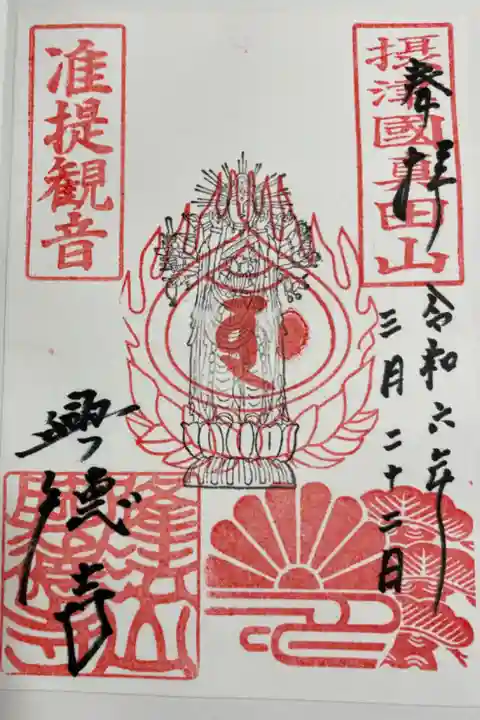 摂津國真田山
奉拝
令和六年
三月二十二日
准提観音
興德寺